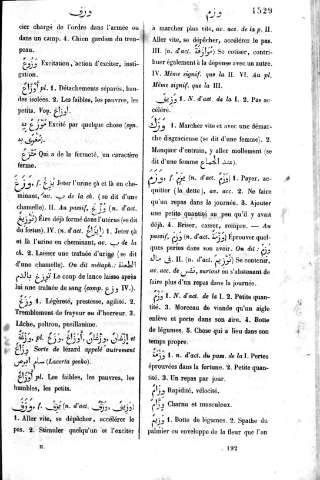 وزف
وزم
1529
cier chargé de l'ordre dans l'armée ou
dans un camp. 4. Chien gardien du trou-
peau.
وَزُوعٌ Excitation, action d'exciter, insti-
gation.
أَوْزَاعٌ pl. 1. Détachements séparés, ban-
des isolées. 2. Les faibles, les pauvres, les
petits. Voy. أوزاغ.
مُوزَعٌ Excité par quelque chose (syn.
Qui a de la fermeté, un caractère
ferme.
وَزَغَ, f. Jeter l'urine çà et là en che-
minant, av. ب de la ch. (se dit d'une
chamelle). II. Au passif, (n. d'act.
Être déjà formé dans l'utérus (se dit
du fœtus). IV. (n. d'act. إيزاغ) Jeter çà
et là l'urine en cheminant, av. ب de la
ch. 2. Laisser une traînée d'urine (se dit
d'une chamelle). On dit métaph.: الطعنة
توزغ بالدم Le coup de lance laisse après
lui une traînée de sang (comp. وزع IV.).
وَزَغٌ 1. Légèreté, prestesse, agilité. 2.
Tremblement de frayeur ou d'horreur. 3.
Lâche, poltron, pusillanime.
وَزَغَةٌ pl. وَزَغٌ, أَوْزَاغٌ, وِزْغَانٌ, إِزْغَانٌ et
وِزَاغٌ Sorte de lézard appelé autrement
سام أبرص (Lacerta gecko).
أَوْزَاغٌ pl. Les faibles, les pauvres, les
humbles, les petits.
وَزَفَ, f. يَزِفُ (n. d'act. وَزْفٌ, وَزِيفٌ)
1. Aller vite, se dépêcher, accélérer le
pas. 2. Stimuler quelqu'un et l'exciter
II.
à marcher plus vite, av. acc. de la p. II.
Aller vite, se dépêcher, accélérer le pas.
III. (n. d'act. مُوَازَفَةٌ) Se cotiser, contri-
buer également à la dépense avec un autre.
IV. Même signif. que la II. VI. Au pl.
Même signif. que la III.
وَزِيفٌ 1. N. d'act. de la I. 2. Pas ac-
céléré.
وَزَكَ 1. Marcher vite et avec une démar-
che disgracieuse (se dit d'une femme). 2.
Manquer d'entrain, y aller mollement (se
dit d'une femme عند الجماع).
وَزَمَ, f. يَزِمُ (n. d'act. وَزْمٌ) 1. Payer, ac-
quitter (la dette), av. acc. 2. Ne faire
qu'un repas dans la journée. 3. Ajouter
une petite quantité au peu qu'il y avait
déjà. 4. Briser, casser, rompre. — Au
passif, وُزِمَ (n. d'act. وَزْمٌ) Éprouver quel-
ques pertes dans son avoir. On dit:
وزم في ماله. II. (n. d'act. تَوْزِيمٌ) Se contenir,
av. acc. de نفس, surtout en s'abstenant de
faire plus d'un repas dans la journée.
وَزْمٌ 1. N. d'act. de la I. 2. Petite quan-
tité. 3. Morceau de viande qu'un aigle
enlève et porte dans son aire. 4. Botte
de légumes. 5. Chose qui a lieu dans son
temps propre.
وَزْمَةٌ 1. n. d'act. du pass. de la I. Pertes
éprouvées dans la fortune. 2. Petite quan-
tité. 3. Un repas par jour.
وِزَامٌ Rapidité, vélocité.
وَزَّامٌ Charnu et musculeux.
وَزِيمٌ 1. Botte de légumes. 2. Spathe du
palmier ou enveloppe de la fleur que l'on
192